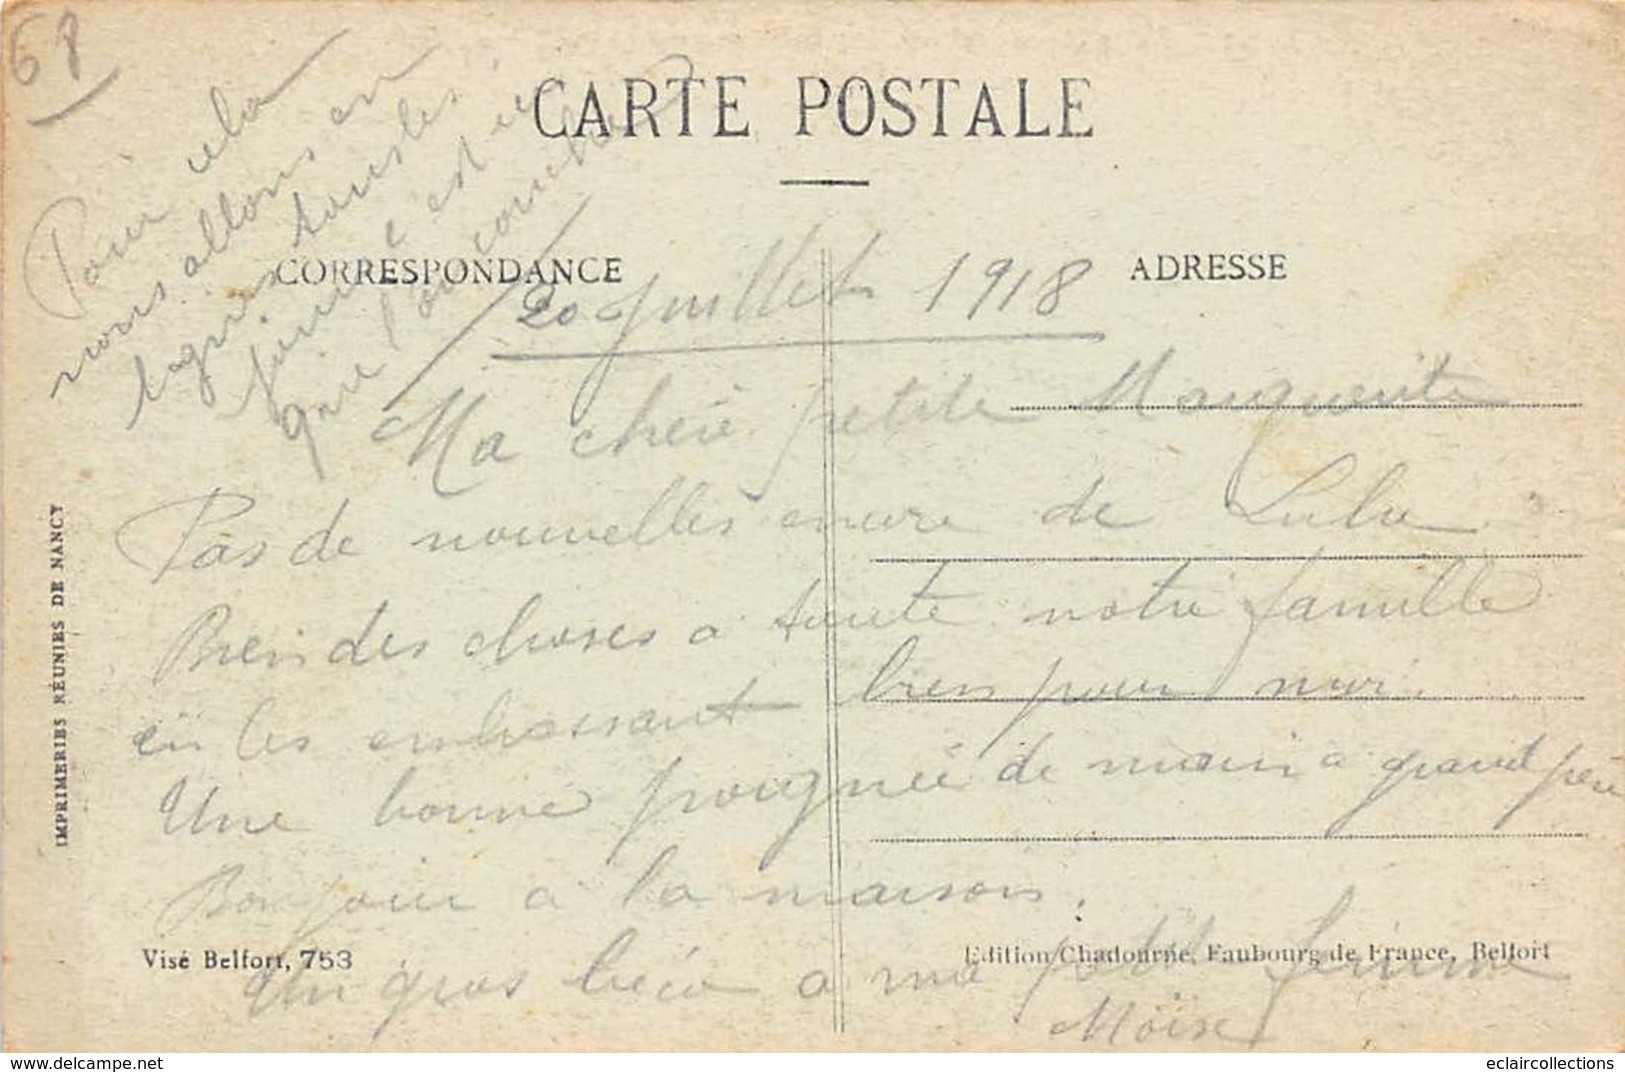 68
CARTE POSTALE
CORRESPONDANCE
ADRESSE
20 Juillet 1918
Ma chère petite Marguerite
Pas de nouvelles encore de Lulu
Bien des choses a toute notre famille
en les embrassant bien pour moi.
Une bonne poignée de main a grand père
Bonjour a la maison.
Un gros bécot a ma petite femme
Moïse
Pour cela
nous allons en
lignes tous les
jours c'est ici
que l'on
IMPRIMERIES RÉUNIES DE NANCY
Visé Belfort, 753
Edition Chadourne, Faubourg de France, Belfort
https://www.delcampe.net
eclaircollections